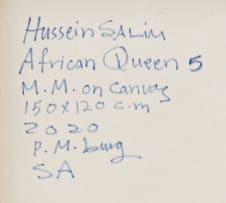 Hussein SALIM
African Queen 5
M.M. on canvas
150x120 c.m
2020
P.M. burg
SA